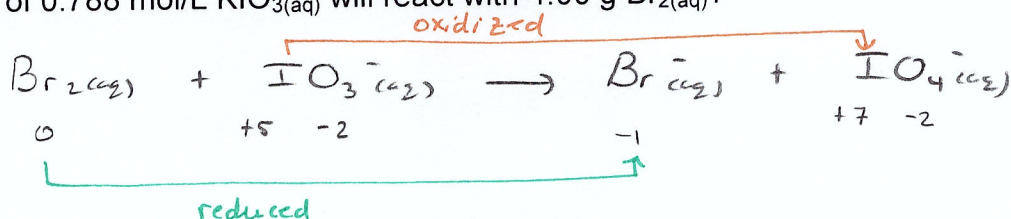 of 0.788 mol/L KIO3(aq) will react with
oxidized
Br2(aq) + IO3⁻(aq) → Br⁻(aq) + IO4⁻(aq)
0 +5 -2 -1 +7 -2
reduced